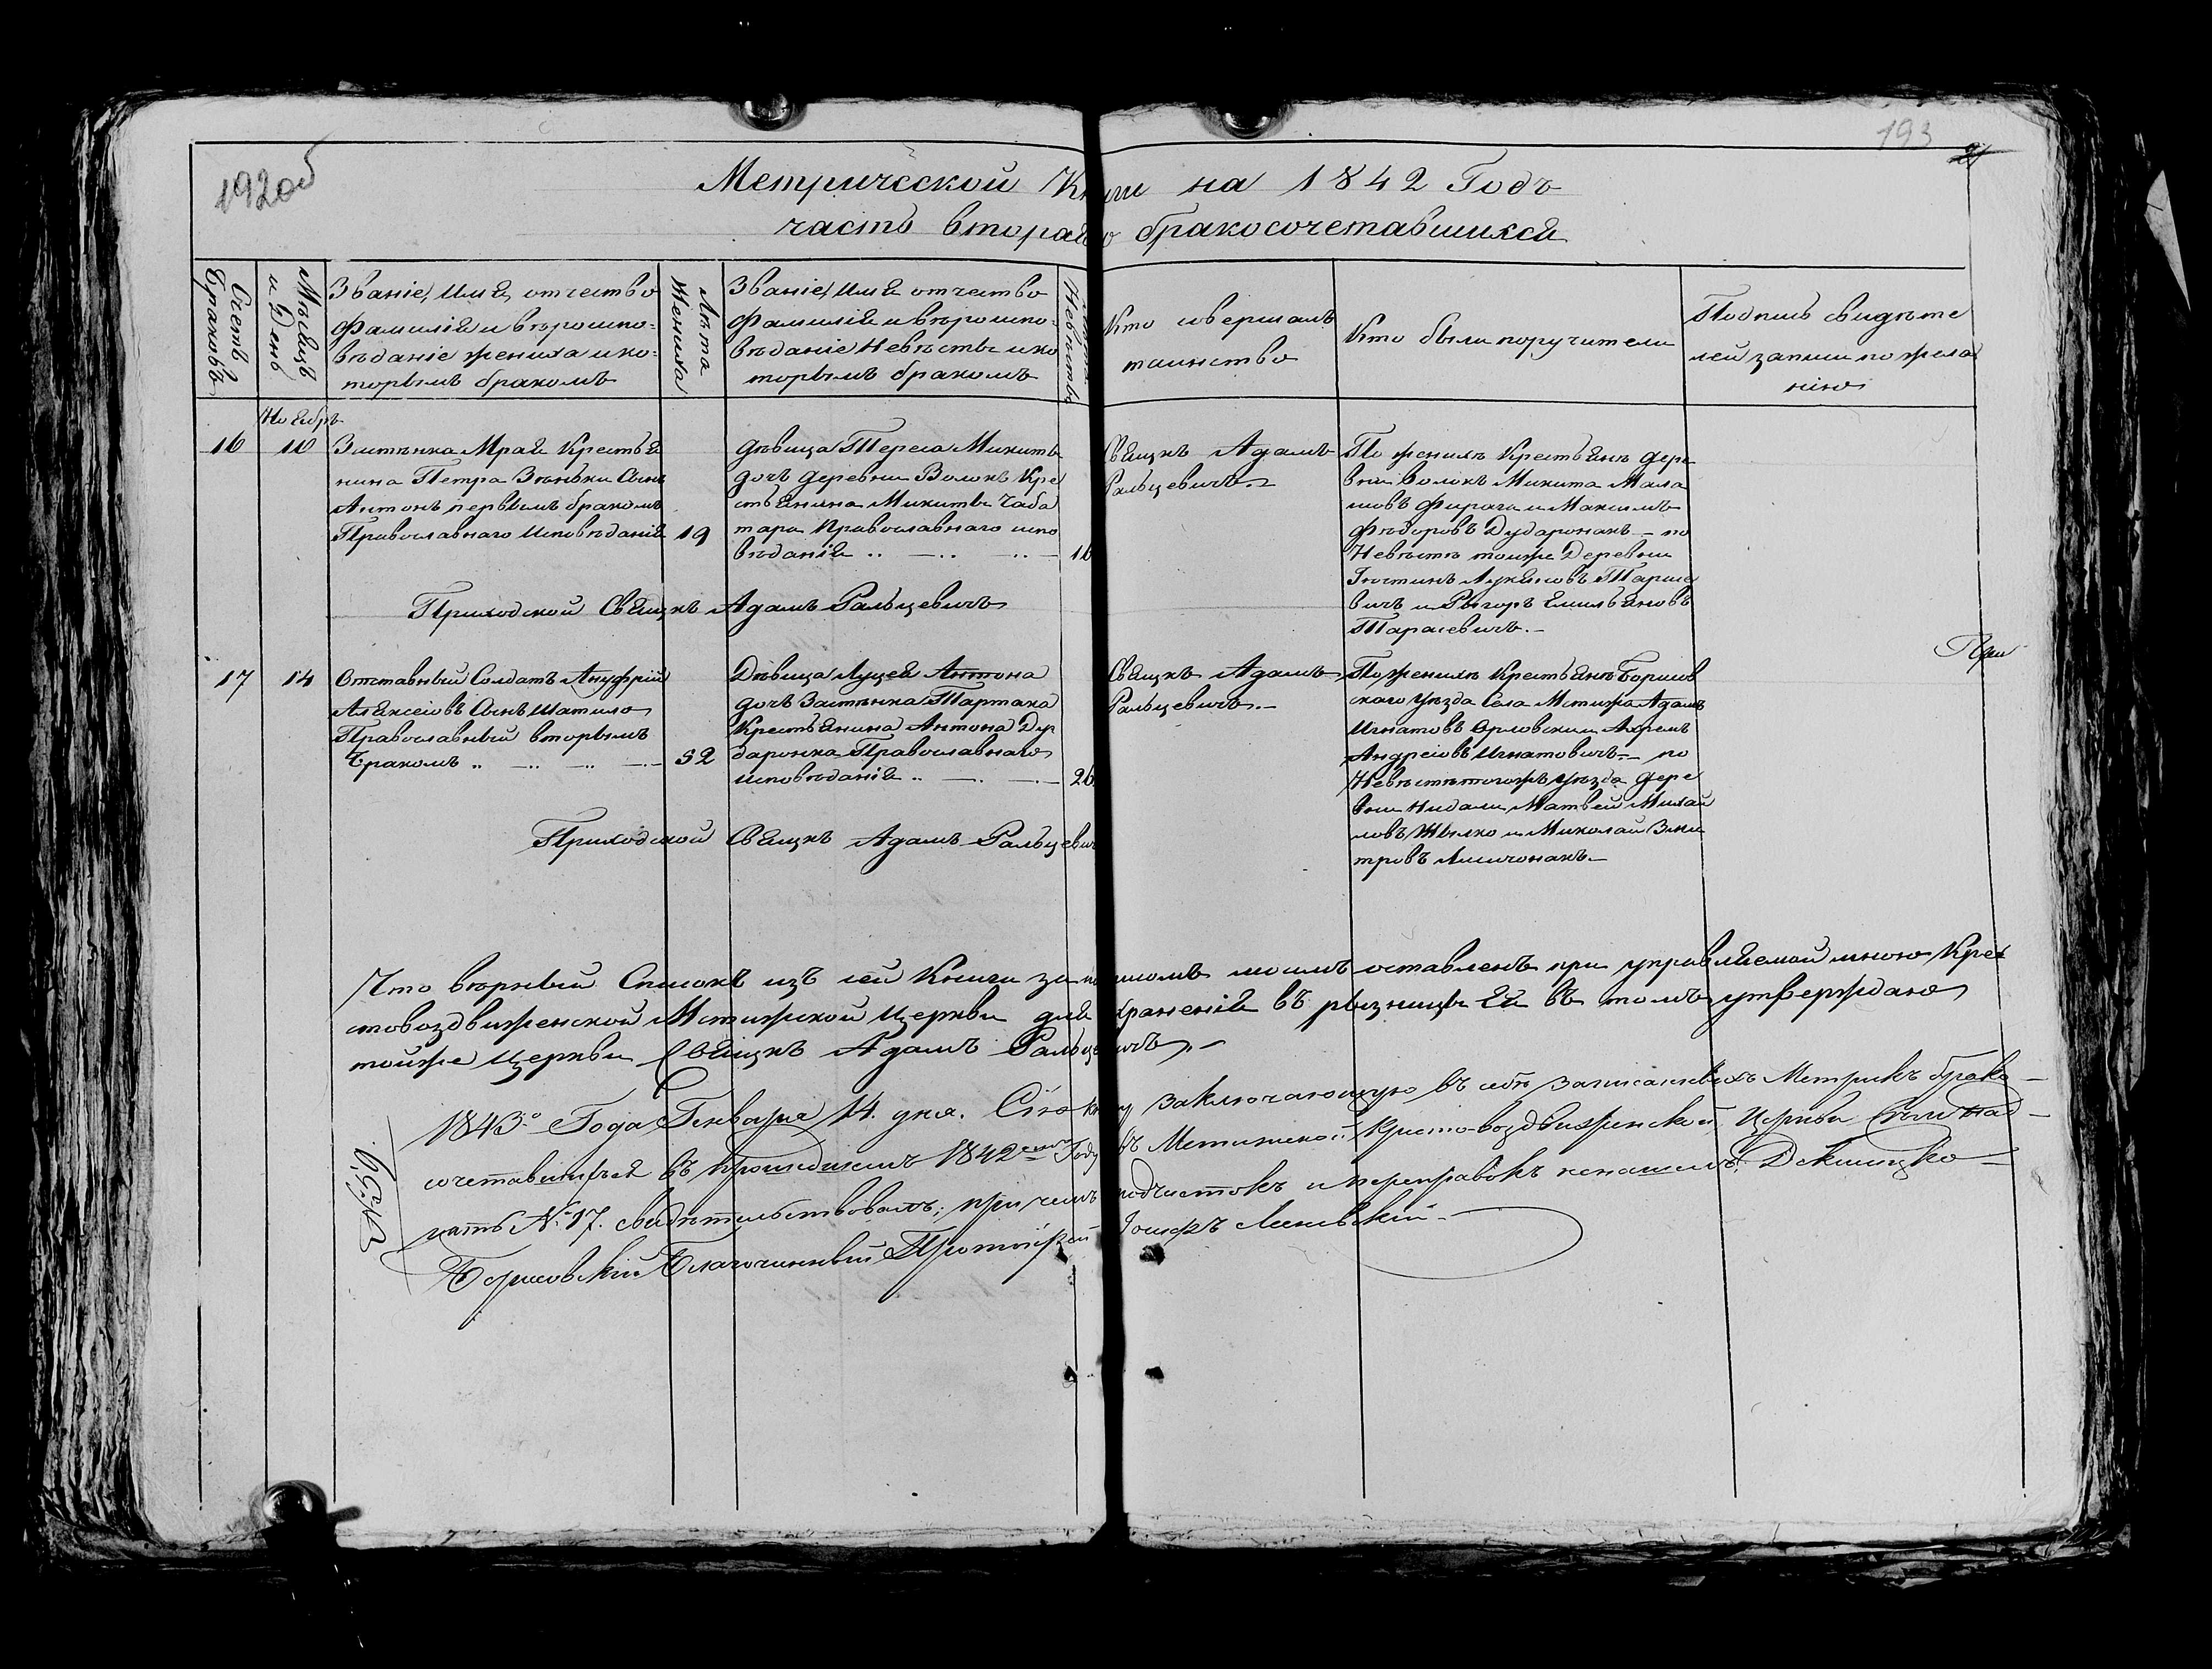 192об
193
21
Метрической Книги на 1842 Годъ
часть вторая о бракосочетавшихся
Счетъ Браковъ
Мѣсяцъ и День
Званіе, имя, отчество
фамилія и вѣроиспо=
вѣданіе жениха и ко=
торымъ бракомъ
Лѣта Жениха
Званіе, имя отчество
фамилія и вѣроиспо=
вѣданіе Невѣсты и ко
торымъ бракомъ
Невѣсты
Кто совершалъ
таинство
Кто были поручители
Подпись свидѣте
лей записи по жела
нію
Ноябрь
16
10
Застѣнка Мрая Крестья
нина Петра Зѣнѣки Сынъ
Антонъ первымъ бракомъ
Православнаго Исповѣданія
19
дѣвица Тереса Микиты
дочь деревни Волокъ Кре
стьянина Микиты Чаба
тара Православнаго испо
вѣданія
16
Свящкъ Адамъ
Ральцевичъ.
По женихѣ Крестьянъ дере
вни Волокъ Микита Мала
шовъ Фирага и Максимъ
Фѣдоровъ Дударонакъ - по
Невѣстѣ тойже Деревни
Іюстинъ Лукяновъ Тарасе
вичъ и Рыгоръ Емильяновъ
Тарасевичъ.-
Приходской Свящкъ Адамъ Ральцевичъ
При
17
14
Отставный Солдатъ Ануфрій
Алексіовъ Сынъ Шатило
Православный вторымъ
Бракомъ
52
Дѣвица Луцея Антона
дочь Застѣнка Тартака
Крестьянина Антона Ду
даронка Православнаго
исповѣданія
26
Свящкъ Адамъ
Ральцевичъ.-
По женихѣ Крестьянъ Борисов
скаго уѣзда Села Мстижа Адамъ
Игнатовъ Орловскій Ахремъ
Андреіовъ Игнатовичъ - по
Невѣстѣ тогожъ уѣзда дере
вни Нидали Матвей Михай
ловъ Жылко и Миколай Зми
тровъ
Приходской Свящкъ Адамъ Ральцевичъ
Что вѣрный Списокъ изъ сей Книги за писомъ моимъ оставленъ при управляемой мною Кре
стовоздвиженской Мстижской Церкви для храненія въ рызницы Ея въ томъ утверждаю
тойже Церкви Свящкъ Адамъ Ральцевичъ.-
1843го Года Генваря 14. дня. Сію книгу заключающую въ себѣ записанныхъ Метрикъ брако
сочетавшихся въ прошедшемъ 1842омъ Году въ Мстижской Кресто-воздвиженской Церкви
нать № 17. свидѣтельствовалъ; при чемъ подчистокъ и переправокъ ненашелъ; Докшицко
Борисовскій Благочинный Протоіерей Іосифъ